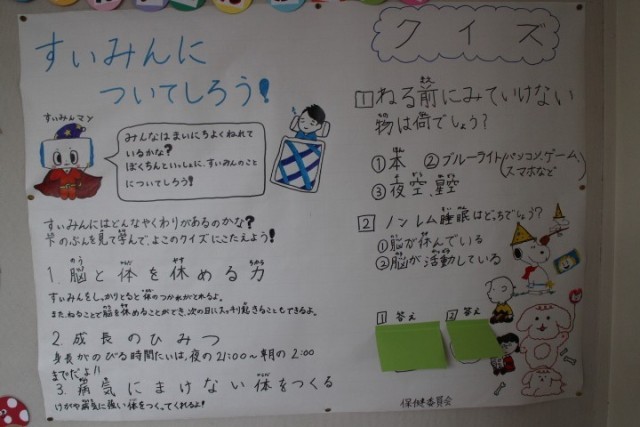 すいみんに
ついてしろう!
すいみんマン
みんなはまいにちよくねれて
いるかな?
ぼくちんといっしょに、すいみんのこと
についてしろう!
すいみんにはどんなやくわりがあるのかな?
下のぶんを見て学んで、よこのクイズにこたえよう!
1. 脳と体を休める力
すいみんをしっかりとると体のつかれがとれるよ。
また、ねることで脳を休めることができ、次の日にスッキリ起きることもできるよ。
2. 成長のひみつ
身長がのびる時間たいは、夜の21:00〜朝の2:00
までだよ!!
3. 病気にまけない体をつくる
けがや病気に強い体をつくってくれるよ!
クイズ
1 ねる前にみていけない
物は何でしょう?
①本 ②ブルーライト(パソコン、ゲーム、
スマホなど)
③夜空、星空
2 ノンレム睡眠はどっちでしょう?
①脳が休んでいる
②脳が活動している
1 答え 2 答え
保健委員会